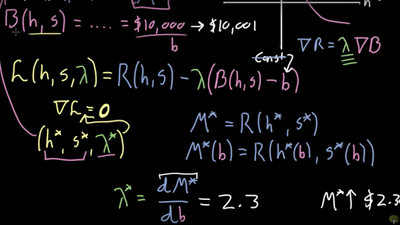 B(h, s) = .... = $10,000 → $10,001
b
h
∇R = λ ∇B
const
ℒ(h, s, λ) = R(h, s) - λ(B(h, s) - b)
∇ℒ = 0
(h*, s*, λ*)
M* = R(h*, s*)
M*(b) = R(h*(b), s*(b))
λ* = dM*/db = 2.3
M* ↑ $2.3